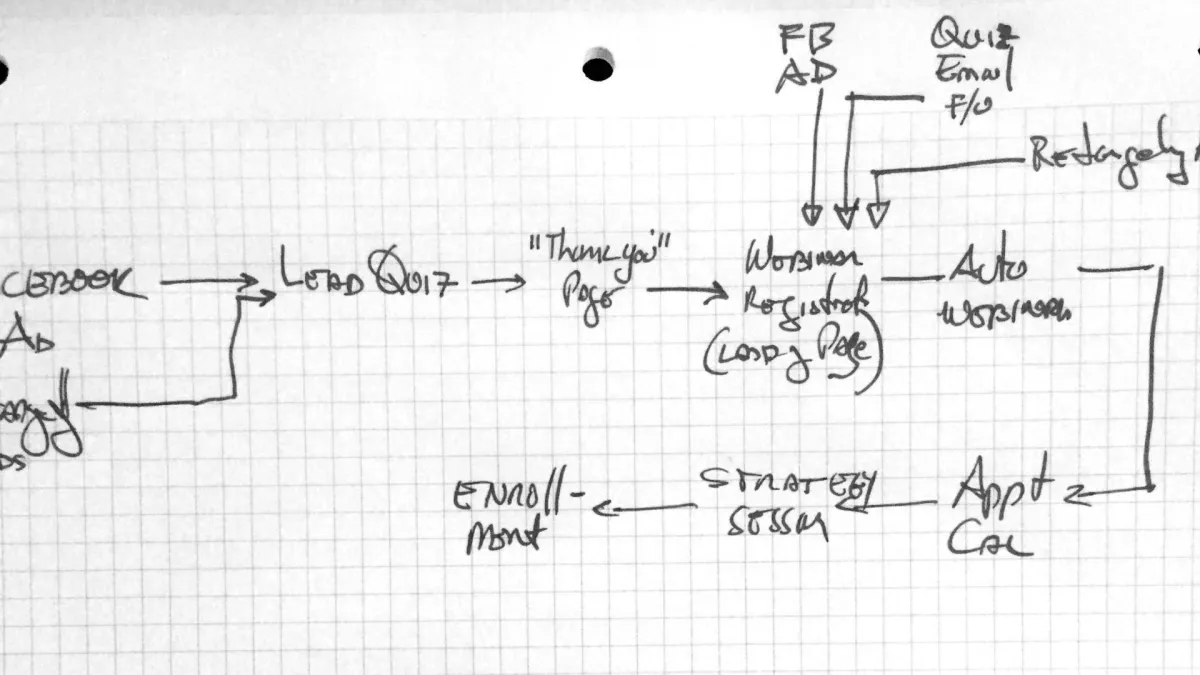 FB
AD
Quiz
Email
F/U
"Thank you"
Page
CEBOOK
AD
DS
LEAD QUIZ
WEBINAR
(Landing Page)
Auto
WEBINAR
Appt
CAL
STRATEGY
SESSION
ENROLL-
MENT